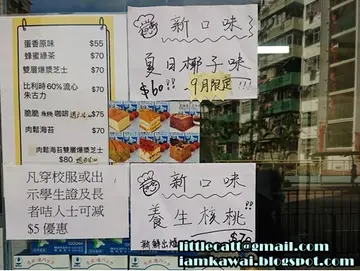 蛋香原味 $55
蜂蜜綠茶 $70
雙層爆漿芝士 $70
比利時60%流心
朱古力 $70
脆脆 咖啡 $75
肉鬆海苔 $70
肉鬆海苔雙層爆漿芝士
$80
新口味
夏日椰子味
$60!! 9月限定!!
凡穿校服或出
示學生證及長
者咭人士可減
$5 優惠
新口味
養生核桃!!
新鮮出爐 $70
littlecatt@gmail.com
iamkawaii.blogspot.com